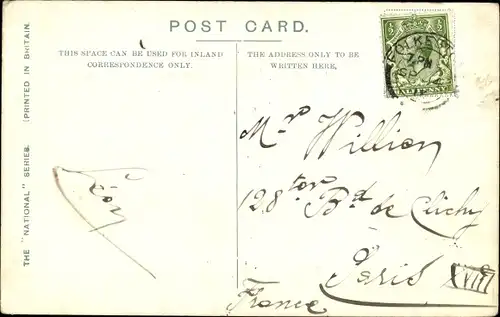 POST CARD.
THIS SPACE CAN BE USED FOR INLAND
CORRESPONDENCE ONLY.
THE ADDRESS ONLY TO BE
WRITTEN HERE.
THE "NATIONAL" SERIES.
(PRINTED IN BRITAIN.
Léon
Mr Willien
128 ter Bd de Clichy
Paris XVIII
France